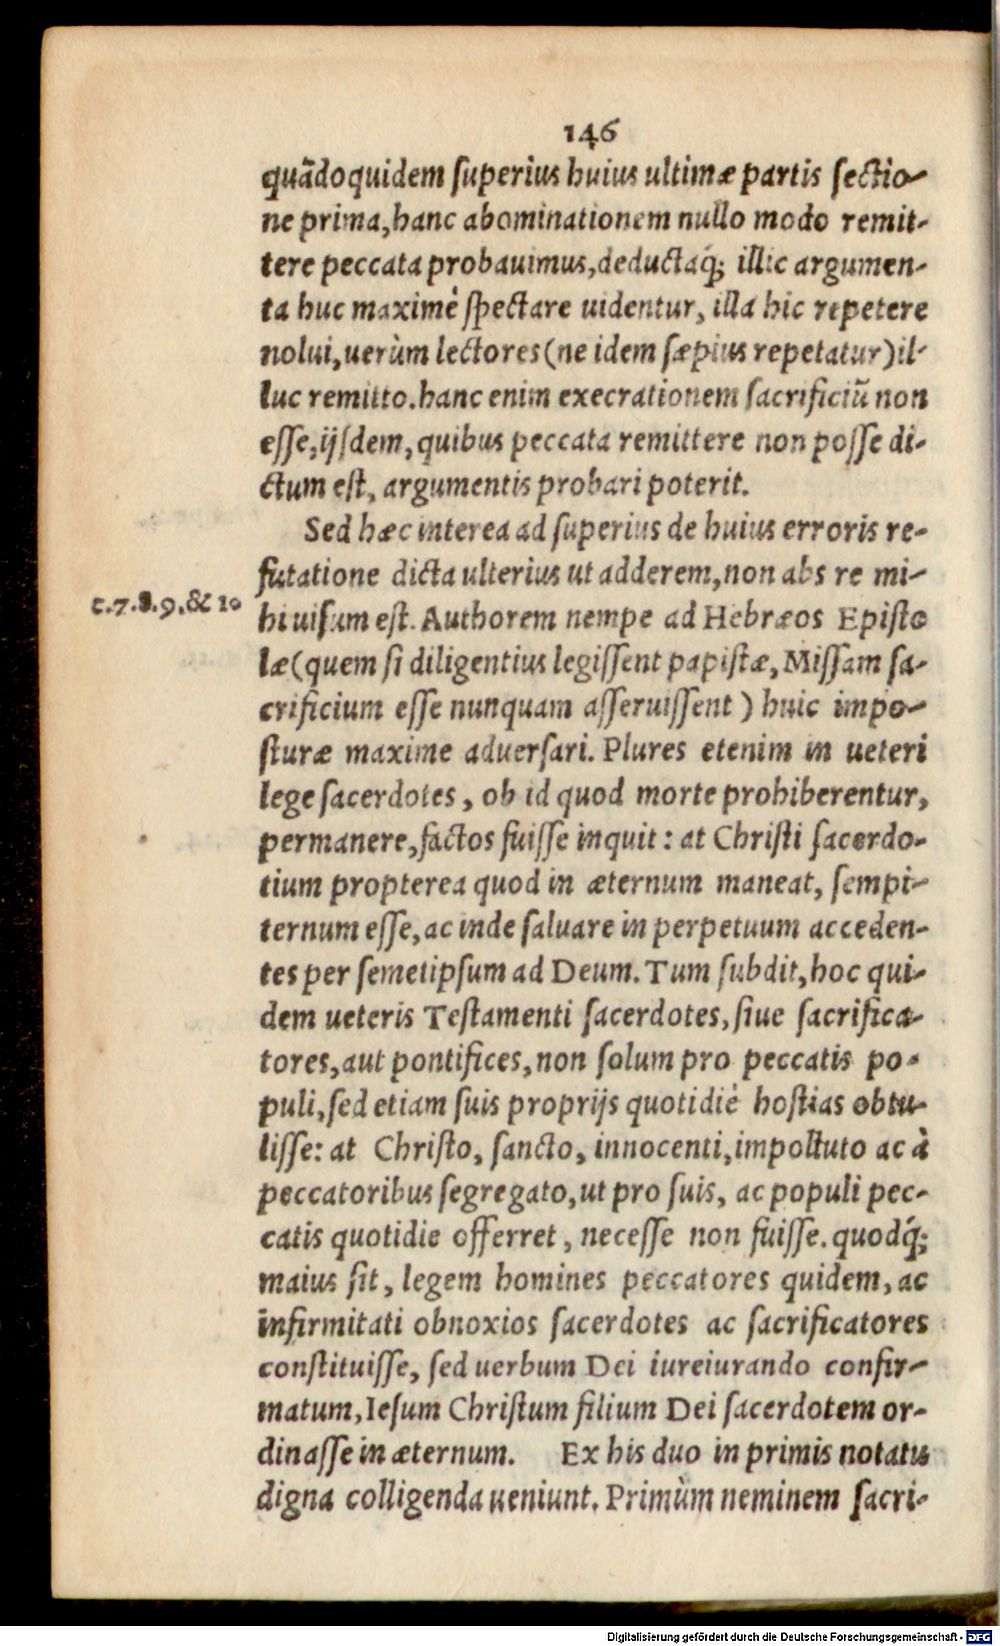 146
quãdoquidem ſuperius huius ultimæ partis ſectio-
ne prima, hanc abominationem nullo modo remit-
tere peccata probauimus, deductaq́; illic argumen-
ta huc maximè ſpectare uidentur, illa hic repetere
nolui, uerùm lectores (ne idem ſæpius repetatur) il-
luc remitto. hanc enim execrationem ſacrificiũ non
eſſe, ijſdem, quibus peccata remittere non poſſe di-
ctum eſt, argumentis probari poterit.
Sed hæc interea ad ſuperius de huius erroris re-
futatione dicta ulterius ut adderem, non abs re mi-
c. 7. 8. 9. & 10
hi uiſum eſt. Authorem nempe ad Hebræos Epiſto
læ (quem ſi diligentius legiſſent papiſtæ, Miſſam ſa-
crificium eſſe nunquam aſſeruiſſent) huic impo-
ſturæ maxime aduerſari. Plures etenim in ueteri
lege ſacerdotes, ob id quod morte prohiberentur,
permanere, factos fuiſſe inquit: at Chriſti ſacerdo-
tium propterea quod in æternum maneat, ſempi-
ternum eſſe, ac inde ſaluare in perpetuum acceden-
tes per ſemetipſum ad Deum. Tum ſubdit, hoc qui-
dem ueteris Teſtamenti ſacerdotes, ſiue ſacrifica-
tores, aut pontifices, non ſolum pro peccatis po-
puli, ſed etiam ſuis proprijs quotidiè hoſtias obtu-
liſſe: at Chriſto, ſancto, innocenti, impolluto ac à
peccatoribus ſegregato, ut pro ſuis, ac populi pec-
catis quotidie offerret, neceſſe non fuiſſe. quodq́;
maius ſit, legem homines peccatores quidem, ac
infirmitati obnoxios ſacerdotes ac ſacrificatores
conſtituiſſe, ſed uerbum Dei iureiurando confir-
matum, Ieſum Chriſtum filium Dei ſacerdotem or-
dinaſſe in æternum. Ex his duo in primis notatu
digna colligenda ueniunt. Primùm neminem ſacri-
Digitalisierung gefördert durch die Deutsche Forschungsgemeinschaft - DFG